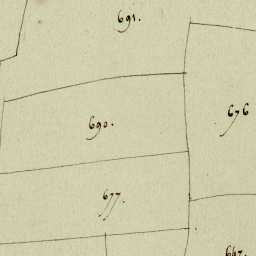 691.
676
690.
677.